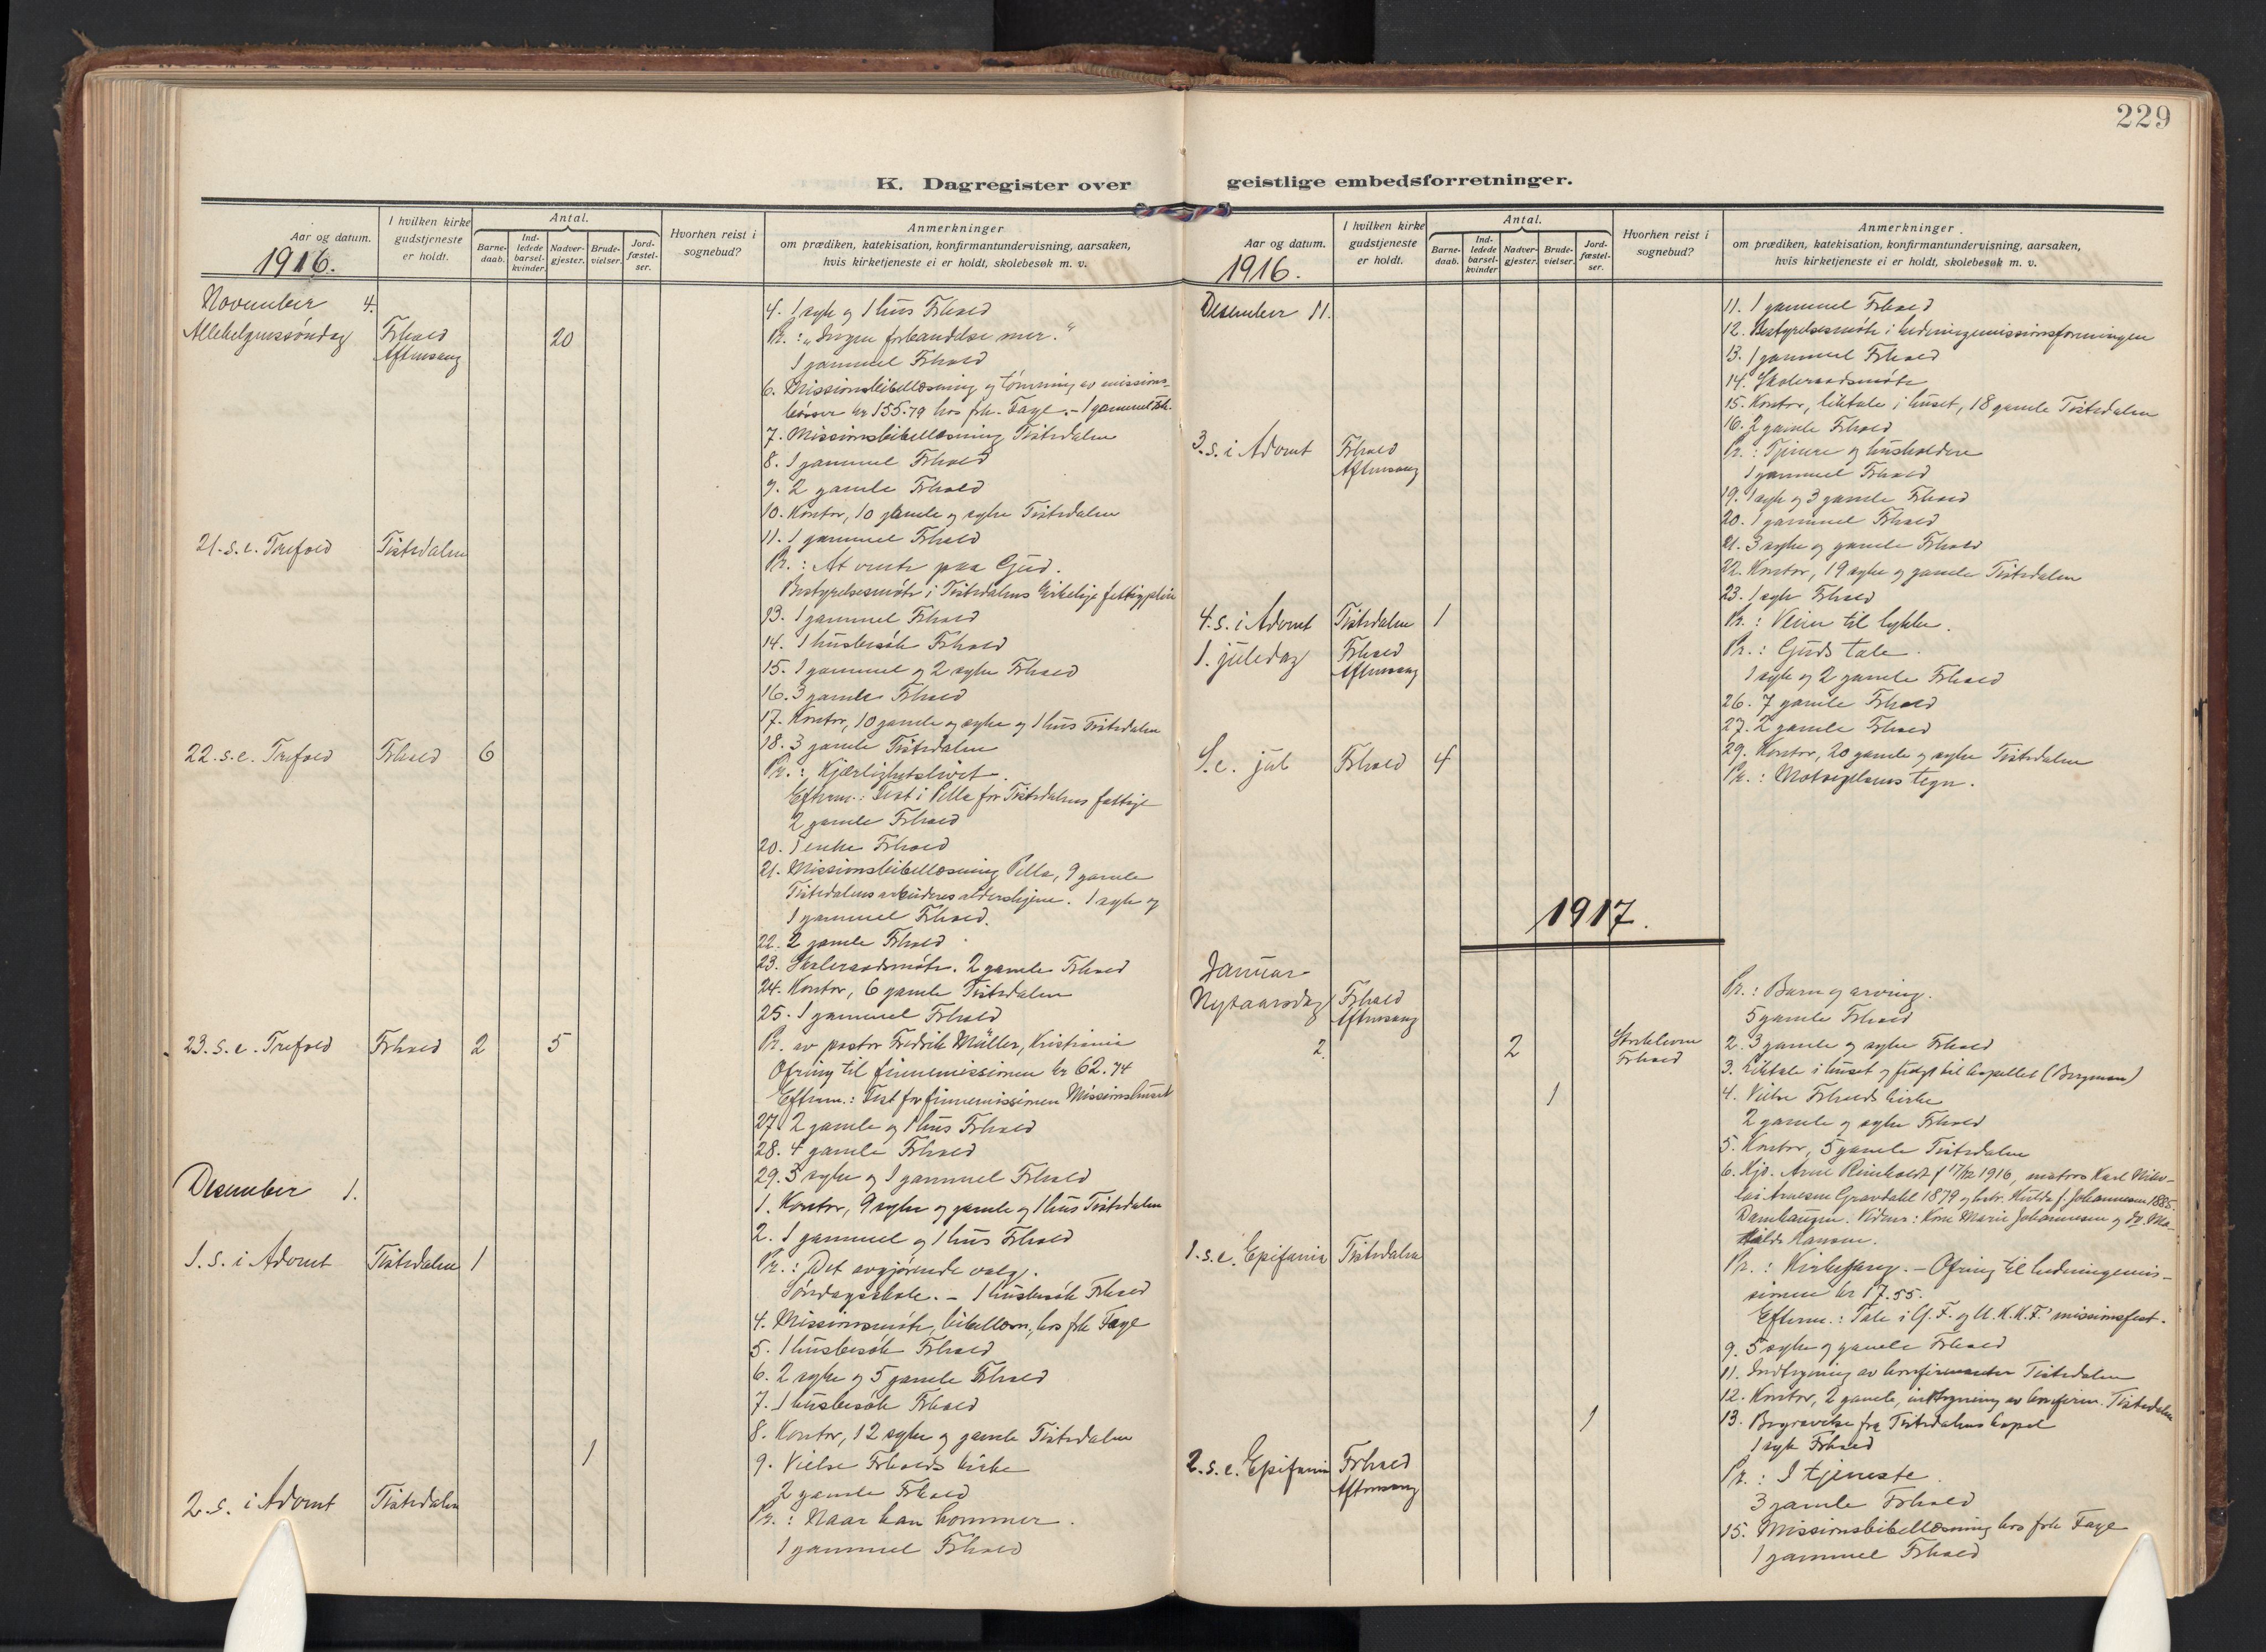 229
K. Dagregister over
geistlige embedsforretninger.
Aar og datum.
1916.
I hvilken kirke
gudstjeneste
er holdt.
Antal.
Barne-
daab.
Ind-
ledede
barsel-
kvinder.
Nadver-
gjester.
Brude-
vielser.
Jord-
fæstel-
ser.
Hvorhen reist i
sognebud?
Anmerkninger
om prædiken, katekisation, konfirmantundervisning, aarsaken,
hvis kirketjeneste ei er holdt, skolebesøk m. v.
November 4.
4. 1 syk og 1 hus Frhald
Allehelgenssöndag Frhald 20 Pr.: "Ingen forbandelse mer."
Aftensang
1 gammel Frhald
6. Missionsbibellæsning og tömning av missions-
bösser kr 155.79 hos frk. Faye. - 1 gammel Frh.
7. Missionsbibellæsning Tistedalen
8. 1 gammel Frhald
9. 2 gamle Frhald
10. Kontor, 10 gamle og syke Tistedalen
11. 1 gammel Frhald
21. s. e. Trefold Tistedalen Pr.: At vente paa Gud.
Bestyrelsesmöte i Tistedalens kirkelige fattigpleie
13. 1 gammel Frhald
14. 1 husbesök Frhald
15. 1 gammel og 2 syke Frhald
16. 3 gamle Frhald
17. Kontor, 10 gamle og syke og 1 hus Tistedalen
18. 3 gamle Tistedalen
22. s. e. Trefold Frhald 6 Pr.: Kjærlighetslivet.
Efterm.: Fest i Pella for Tistedalens fattige
2 gamle Frhald
20. 1 enke Frhald
21. Missionsbibellæsning Pella, 9 gamle
Tistedalens arbeideres aldershjem. 1 syk og
1 gammel Frhald.
22. 2 gamle Frhald
23. Skoleraadsmöte. 2 gamle Frhald
24. Kontor, 6 gamle Tistedalen
25. 1 gammel Frhald
23. s. e. Trefold Frhald 2 5 Pr. av pastor Fredrik Müller, Kristiania
Ofring til finnemissionen kr 62.74
Efterm.: Fest for finnemissionen Missionshuset
27. 2 gamle og 1 hus Frhald
28. 4 gamle Frhald
29. 3 syke og 1 gammel Frhald
Desember 1.
1. Kontor, 9 syke og gamle og 1 hus Tistedalen
2. 1 gammel og 1 hus Frhald
1. s. i Advent Tistedalen 1 Pr.: Det avgjörende valg.
Söndagsskole. - 1 husbesök Frhald
4. Missionsmöte, bibellæsn., hos frk Faye
5. 1 husbesök Frhald
6. 2 syke og 5 gamle Frhald
7. 1 husbesök Frhald
8. Kontor, 12 syke og gamle Tistedalen
1 9. Vielse Frhalds kirke
2 gamle Frhald
2. s. i Advent Tistedalen Pr.: Naar han kommer.
1 gammel Frhald
Aar og datum.
1916.
I hvilken kirke
gudstjeneste
er holdt.
Antal.
Barne-
daab.
Ind-
ledede
barsel-
kvinder
Nadver-
gjester.
Brude-
vielser.
Jord-
fæstel-
ser.
Hvorhen reist i
sognebud?
Anmerkninger
om prædiken, katekisation, konfirmantundervisning, aarsaken,
hvis kirketjeneste ei er holdt, skolebesøk m. v.
Desember 11.
11. 1 gammel Frhald
12. Bestyrelsesmöte i hedningemissionsforeningen
13. 1 gammel Frhald
14. Skoleraadsmöte
15. Kontor, liktale i huset, 18 gamle Tistedalen
16. 2 gamle Frhald
3. s. i Advent Frhald Pr.: Tjenere og husholdere
Aftensang
1 gammel Frhald
19. 1 syk og 3 gamle Frhald
20. 1 gammel Frhald
21. 3 syke og gamle Frhald
22. Kontor, 19 syke og gamle Tistedalen
23. 1 syk Frhald
4. s. i Advent Tistedalen 1 Pr.: Veien til lykke.
1. juledag Frhald Pr.: Guds tale.
Aftensang
1 syk og 2 gamle Frhald
26. 7 gamle Frhald
27. 2 gamle Frhald
29. Kontor, 20 gamle og syke Tistedalen
S. e. jul Frhald 4 Pr.: Motsigelsens tegn.
1917.
Januar
Nytaarsdag Frhald Pr.: Barn og arving.
Aftensang
5 gamle Frhald
2. 2 Frhald 2. 3 gamle og syke Frhald
3. Liktale i huset og fulgt til kapellet (Bergman)
1 4. Vielse Frhalds kirke
2 gamle og syke Frhald
5. Kontor, 5 gamle Tistedalen
6. Hjd. Arne Reinholdt f 17/12 1916, matros Karl Niko-
lai Arnesen Gravdahl 1879 og hstr. Hulda f. Johannesen 1885.
Damhaugen. Vidner: Kone Marie Johannesen og do Ma-
thilde Hansen.
1. s. e. Epifania Tistedalen Pr.: Kirkegang. - Ofring til hedningemis-
sionen kr 17.55.
Efterm.: Tale i G. F. og U. K. K. F.' missionsfest.
9. 5 syke og gamle Frhald
11. Indtegning av konfirmanter Tistedalen
12. Kontor, 2 gamle, indtegning av konfirm. Tistedalen
1 13. Begravelse fra Tistedalens kapel
1 syk Frhald
2. s. e. Epifania Frhald Pr.: I tjeneste.
Aftensang
3 gamle Frhald
15. Missionsbibellæsning hos frk Faye
1 gammel Frhald